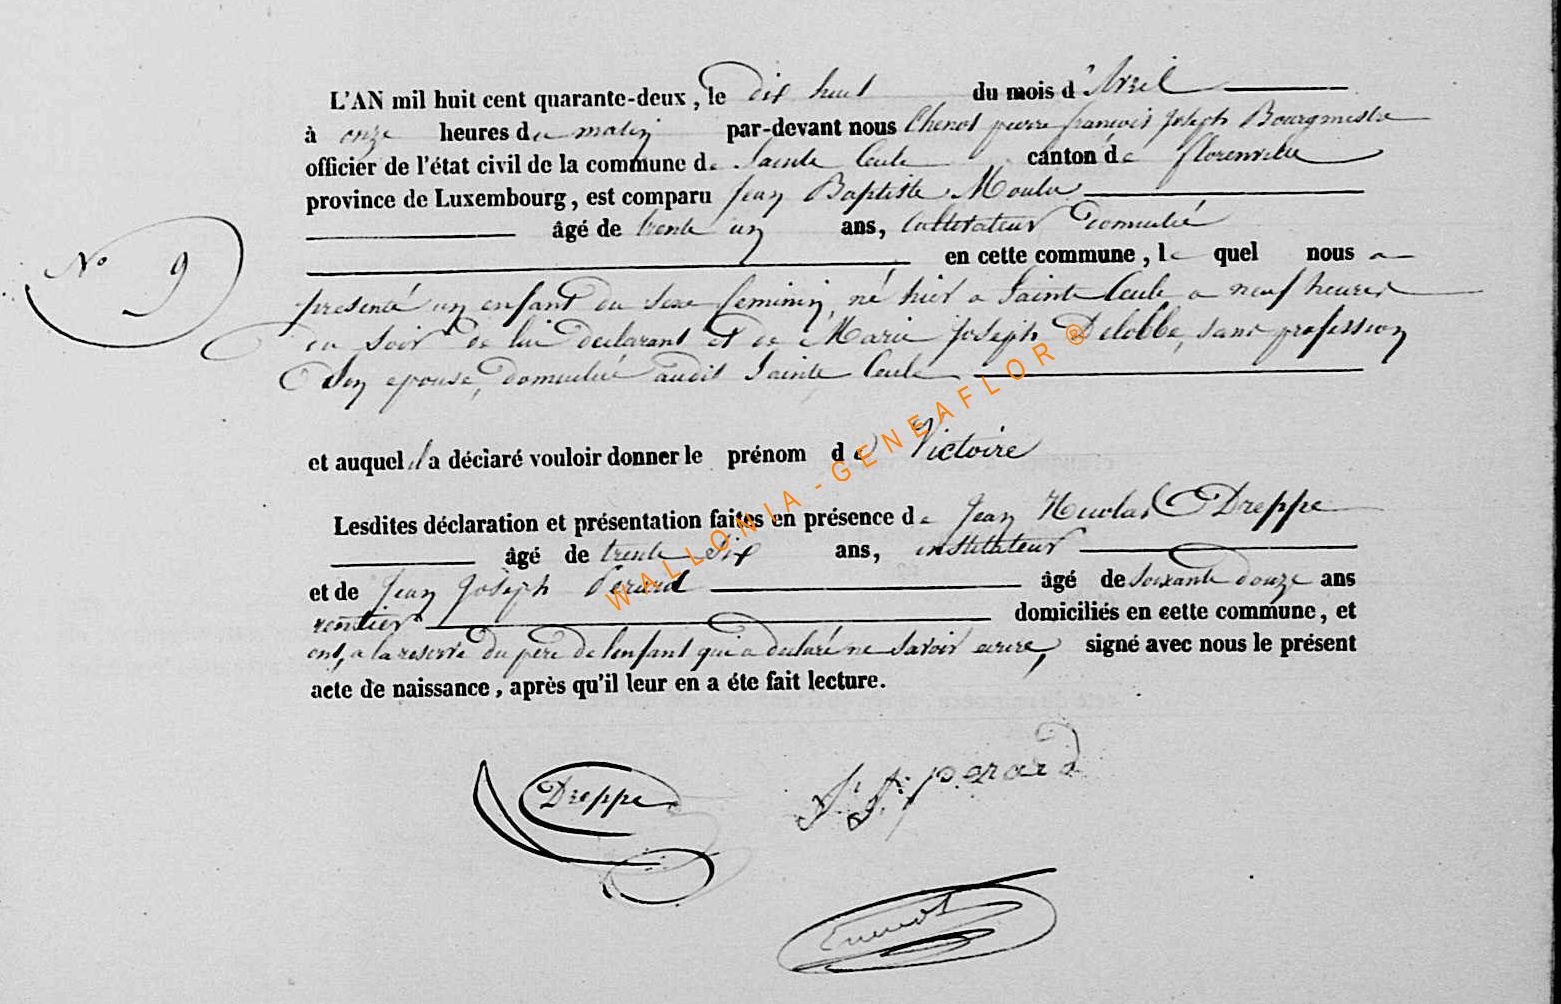 L'AN mil huit cent quarante-deux, le dix huit du mois d'Avril
à onze heures du matin par-devant nous Chenot pierre françois Joseph Bourgmestre
officier de l'état civil de la commune de Sainte Cecile canton de florenville
province de Luxembourg, est comparu Jean Baptiste Moulu
âgé de trente un ans, Cultivateur domicilié
en cette commune, le quel nous a
N° 9
présenté un enfant du sexe feminin, né hier a Sainte Cecile a neuf heures
du soir de lui declarant et de Marie Joseph Delobbe, sans profession
Son epouse, domicilié audit Sainte Cecile
et auquel il a déclaré vouloir donner le prénom de Victoire
Lesdites déclaration et présentation faites en présence de Jean Nicolas Dreppe
âgé de trente six ans, instituteur
et de Jean Joseph Perard âgé de soixante douze ans
rentier domiciliés en cette commune, et
ont, a la reserve du père de l'enfant qui a declaré ne savoir ecrire, signé avec nous le présent
acte de naissance, après qu'il leur en a éte fait lecture.
WALLONIA - GENEAFLOR ®
Dreppe
J. J. perard